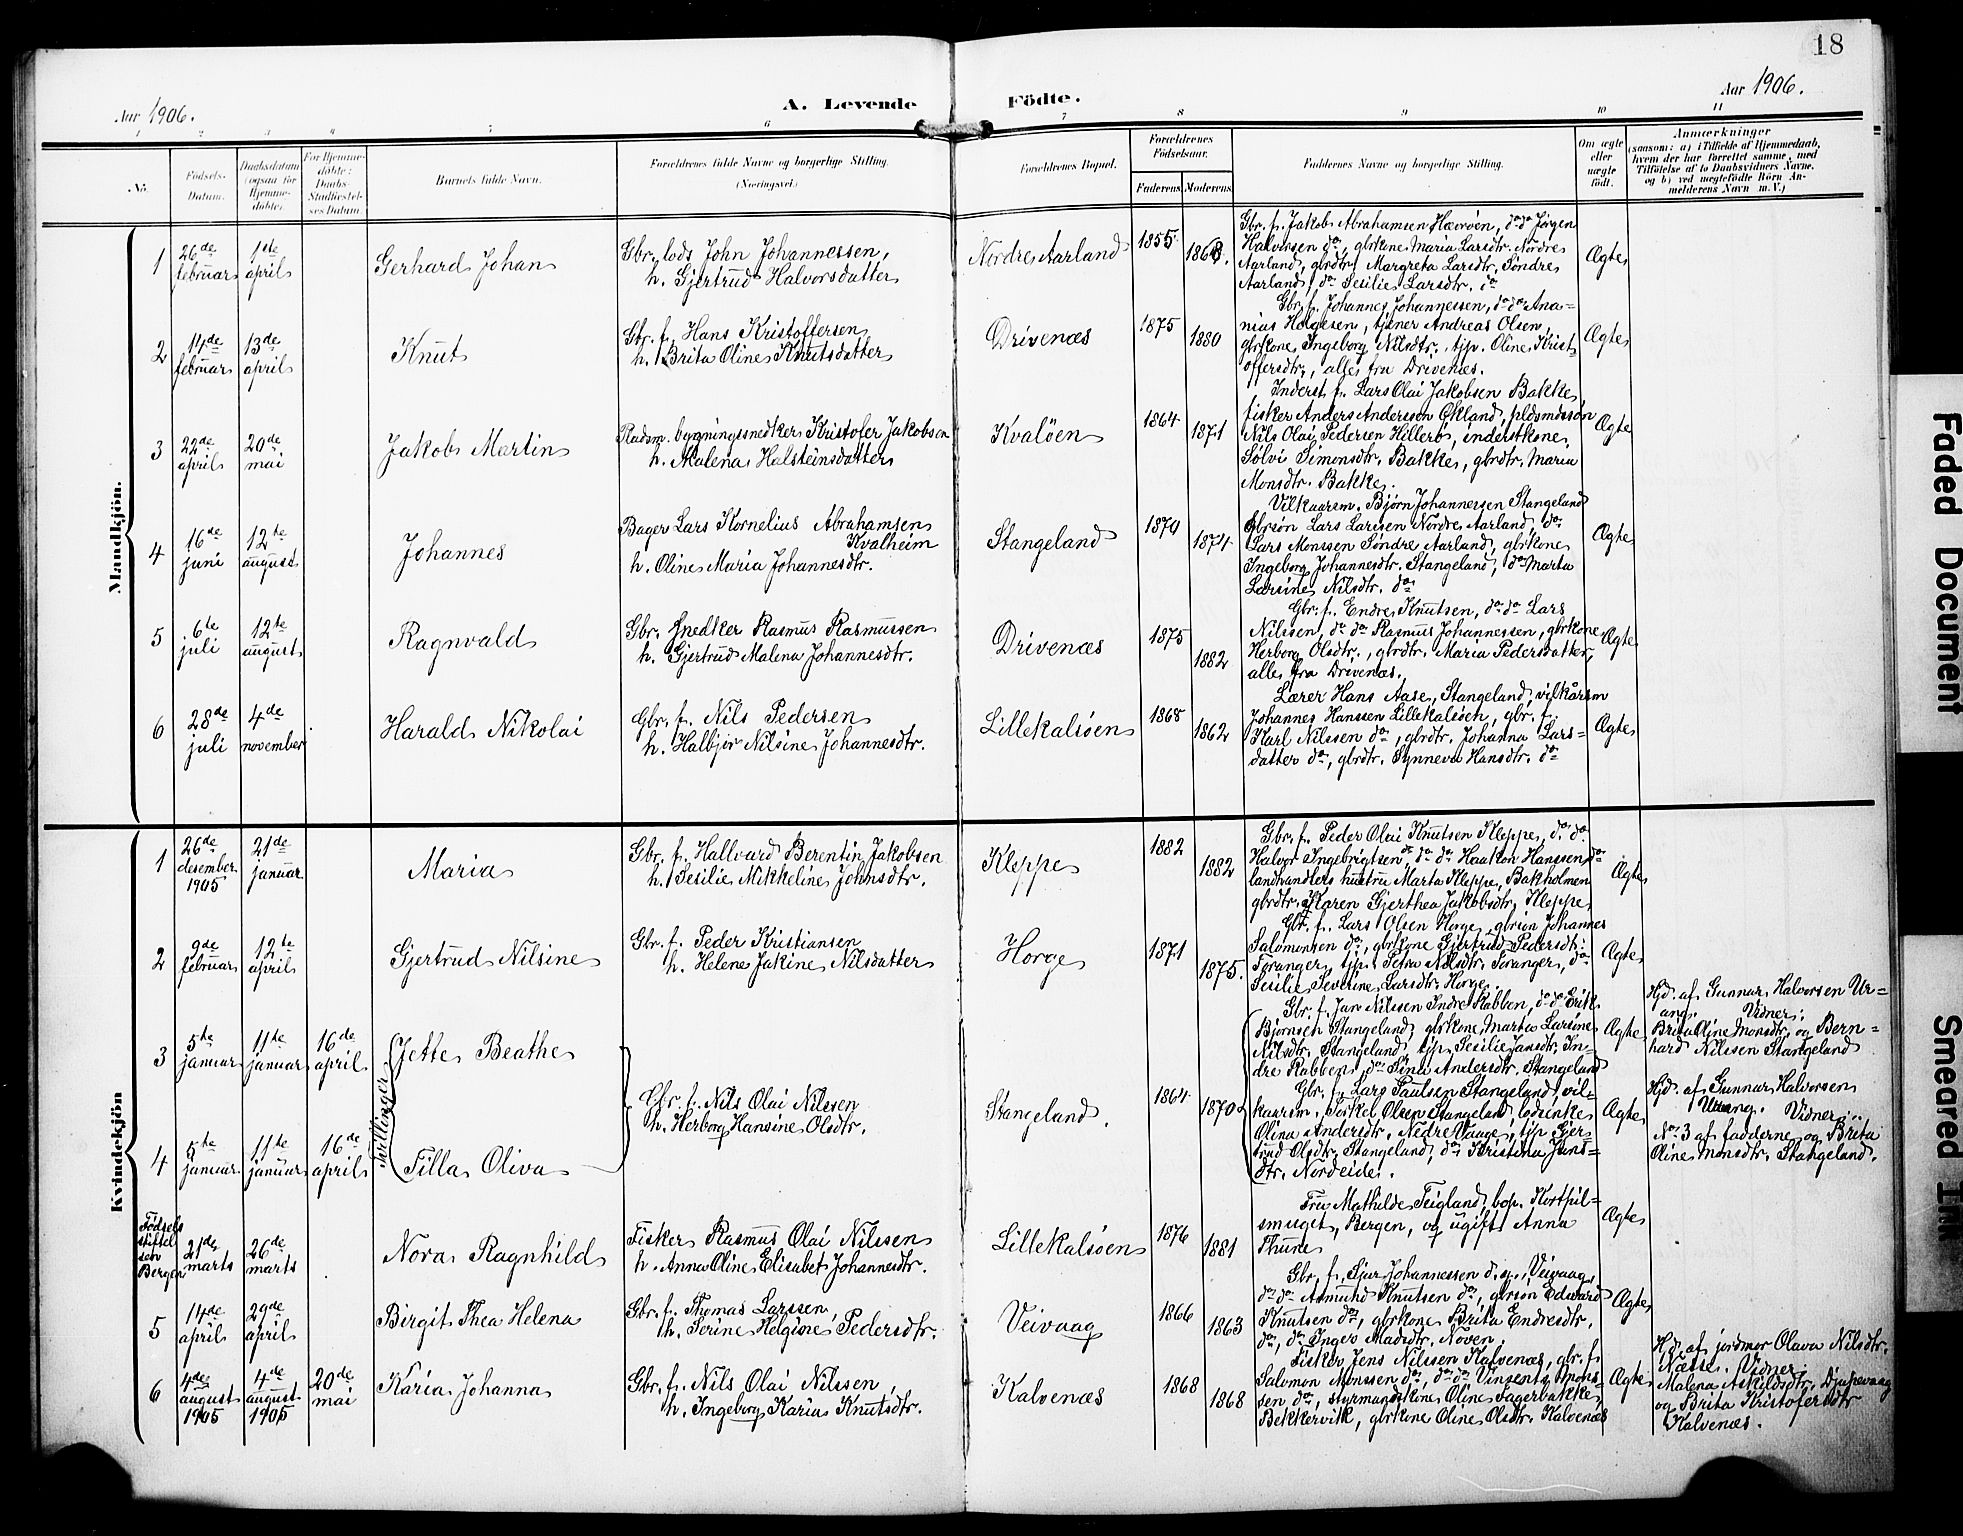 18
Aar 1906.
A. Levende Födte.
Aar 1906.
1 2 3 4 5 6 7 8 9 10 11
No.
Födsels-Datum.
Daabsdatum (ogsaa for Hjemme-döbte).
For Hjemme-döbte: Daabs-Stadfæstel-ses Datum.
Barnets fulde Navn.
Forældrenes fulde Navne og borgerlige Stilling.
(Næringsvei.)
Forældrenes Bopæl.
Forældrenes Födselsaar.
Faderens Moderens
Faddernes Navne og borgerlige Stilling.
Om ægte eller uægte födt.
Anmærkninger
(saasom: a) i Tilfælde af Hjemmedaab,
hvem der har forrettet samme, med
Tilföielse af to Daabsvidners Navne.
og b) ved uægtefödte Börn An-
melderens Navn m. V.)
Mandkjön.
1
26de februar
1ste april
Gerhard Johan
Gbr. lods John Johannessen,
h. Gjertrud Halvorsdatter
Nordre Aarland
1855
1863.
Gbr. f. Jakob Abrahamsen Hævröen, do do Jørgen
Halvorsen do, gbrkone Maria Larsdtr. Nordre
Aarland, gbrdtr. Margreta Larsdtr. Søndre
Aarland, do Sesilie Larsdtr. do
Ægte
2
14de februar
13de april
Knut
Gbr. f. Hans Kristoffersen
h. Brita Oline Knutsdatter
Drivenæs
1875
1880
Gbr. f. Johannes Johannessen, do do Ana-
nias Helgesen, tjener Andreas Olsen,
gbrkone Ingeborg Nilsdtr., tjp. Oline Krist-
offersdtr., alle fra Drivenæs.
Ægte
3
22de april
20de mai
Jakob Martin
Pladsm. bygningssnedker Kristofer Jakobsen
h. Malena Halsteinsdatter
Kvalöen
1864
1871
Inderst f. Lars Olai Jakobsen Bakke,
fisker Anders Anderssøn Økland, pldsmdssøn
Nils Olai Pedersen Hillerö, inderstkone
Sølvi Simonsdtr. Bakke, gbrdtr. Maria
Monsdtr. Bakke.
Ægte
4
16de juni
12te august
Johannes
Bager Lars Kornelius Abrahamsen
Kvalheim
h. Oline Maria Johannesdtr.
Stangeland
1870
1874
Vilkaarsm. Bjørn Johannessen Stangeland
Gbrsøn Lars Larssen Nordre Aarland, do
Lars Monssen Søndre Aarland, gbrkone
Ingeborg Johannesdtr. Stangeland, do Marta
Larsine Nilsdtr. do
Ægte
5
6te juli
12te august
Ragnvald
Gbr. snedker Rasmus Rasmussen
h. Gjertrud Malena Johannesdtr.
Drivenæs
1875
1882
Gbr. f. Endre Knutsen, do do Lars
Nilssen, do do Rasmus Johannessen, gbrkone
Herborg Olsdtr., gbrdtr. Maria Pedersdatter,
alle fra Drivenæs.
Ægte
6
28de juli
4de november
Harald Nikolai
Gbr. f. Nils Pedersen
h. Halbjør Nilsine Johannesdtr.
Lillekalsöen
1868
1862
Lærer Hans Aase, Stangeland, vilkårsm
Johannes Hanssen Lillekalsöen, gbr. f.
Karl Nilssen do, gbrdtr. Johanna Lars-
datter do, gbrdtr. Synneva Hansdtr. do
Ægte
Kvindekjön
1
26de desember 1905
21de januar
Maria
Gbr. f. Hallvard Berentin Jakobsen
h. Sesilie Mikkeline Johnsdtr.
Kleppe
1882
1882
Gbr. f. Peder Olai Knutsen Kleppe, do do
Halvor Ingebrigtsen do, do do Haakon Hanssen do
landhandlers hustru Marta Kleppe, Bakholmen
gbrdtr. Karen Gjerthea Jakobsdtr. Kleppe.
Ægte
2
9de februar
12te april
Gjertrud Nilsine
Gbr. f. Peder Kristiansen
h. Helene Jakine Nilsdatter
Horge
1871
1875.
Gbr. f. Lars Olsen Horge, gbrsøn Johannes
Salomonsen do, gbrkone Gjertrud Pedersdtr.
Foranger, tjp. Petra Nilsdtr. Foranger, do
Sesilie Severine Larsdtr. Horge.
Ægte
3
5te januar
11te januar
16de april
Tvillinger
Jette Beathe
Gbr. f. Nils Olai Nilssen
h. Herborg Hansine Olsdtr.
Stangeland.
1864
1870
Gbr. f. Jan Nilssen Indre Rabben, do do Erik
Björnsen Stangeland, gbrkone Marta Larsine
Nilsdtr. Stangeland, tjp. Sesilie Jansdtr. In-
dre Rabben, do Sina Andersdtr. Stangeland
Ægte
Hjd. af Gunnar Halvorsen Ur-
ang. Vidner:
Brita Oline Monsdtr. og Bern-
hard Nilssen Stangeland
4
5te januar
11te januar
16de april
Tilla Oliva
Gbr. f. Lars Paulsen Stangeland, vil-
kaarsm. Torkel Olsen Stangeland, lodsenke
Olina Andersdtr. Nedre Vaage, tjp. Gjer-
trud Olsdtr. Stangeland, do Kristina Jans-
dtr. Nordeide.
Ægte
Hjd. af Gunnar Halvorsen
Urang. Vidner:
No. 3 af fadderne og Brita
Oline Monsdtr. Stangeland.
Födsels
stiftel
sen
Bergen
21de marts
26de marts
Nora Ragnhild
Fisker Rasmus Olai Nilssen
h. Anna Oline Elisabet Johannesdtr.
Lillekalsöen
1876
1881
Fru Mathilde Teigland, bop. Kortpil-
smuget, Bergen, og ugift Anna
Thune
Ægte
5
14de april
29de april
Birgit Thea Helena
Gbr. f. Thomas Larssen
h. Serine Helgine Pedersdtr.
Veivaag
1866
1863
Gbr. f. Sjur Johannessen d. y. Veivaag,
do do Asmund Knutsen do, gbrsøn Edvard
Knutsen do, gbrkone Brita Endresdtr.
do, do Inger Madsdtr. Noven.
Ægte
6
4de august 1905
4de august 1905
20de mai
Karia Johanna
Gbr. f. Nils Olai Nilssen
h. Ingeborg Karia Knutsdtr.
Kalvenæs
1868
1868
Fisker Jens Nilssen Kalvenæs, gbr. f.
Salomon Monssen do, do do Vinsents Mons-
sen do, styrmandskone Oline Fagerbakke,
Bekkervik, gbrkone Oline Olsdtr. Kalvenæs
Ægte
Hjd. af jordmor Olava Nilsdtr.
Næsse. Vidner:
Malena Askildsdtr. Djupevaag
og Brita Kristofersdtr
Kalvenæs.
Faded Document
Smeared Ink